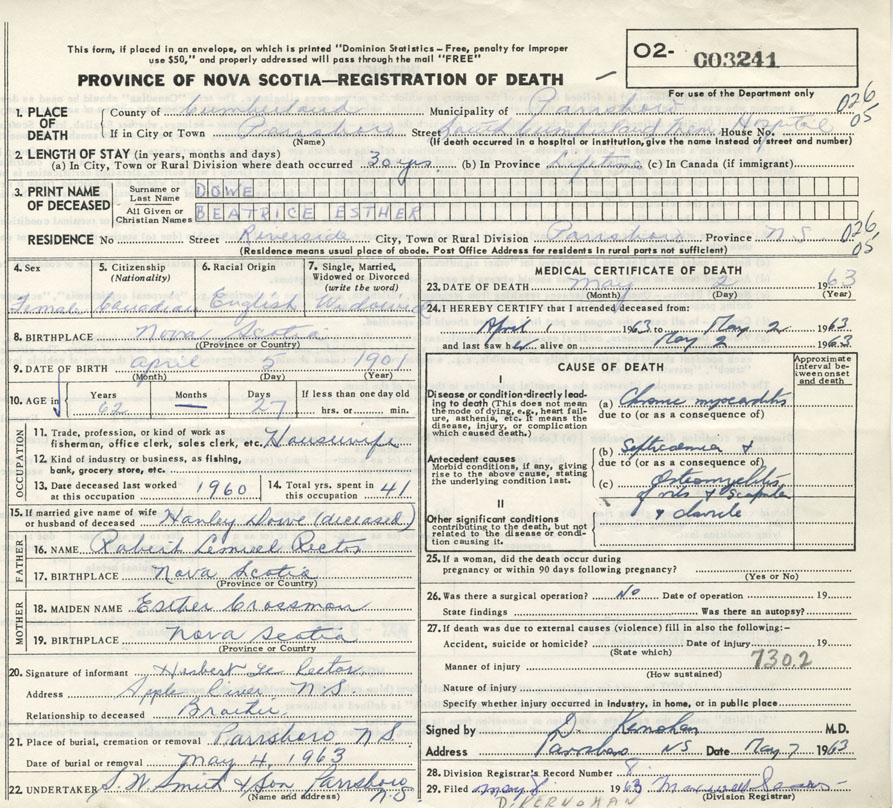 This form, if placed in an envelope, on which is printed "Dominion Statistics - Free, penalty for improper
use $50," and properly addressed will pass through the mail "FREE"
PROVINCE OF NOVA SCOTIA—REGISTRATION OF DEATH
O2- 003241
For use of the Department only
1. PLACE OF DEATH
County of Cumberland Municipality of Parrsboro 026
If in City or Town Parrsboro Street South Cumberland Mem Hospital House No. 05
(Name) (If death occurred in a hospital or institution, give the name instead of street and number)
2. LENGTH OF STAY (in years, months and days)
(a) In City, Town or Rural Division where death occurred 30 yrs. (b) In Province Lifetime (c) In Canada (if immigrant)
3. PRINT NAME OF DECEASED
Surname or Last Name DOWE
All Given or Christian Names BEATRICE ESTHER
RESIDENCE No Street Riverside City, Town or Rural Division Parrsboro Province N.S. 026
05
(Residence means usual place of abode. Post Office Address for residents in rural parts not sufficient)
4. Sex
Female
5. Citizenship (Nationality)
Canadian
6. Racial Origin
English
7. Single, Married, Widowed or Divorced (write the word)
Widowed
8. BIRTHPLACE Nova Scotia
(Province or Country)
9. DATE OF BIRTH April 5 1901
(Month) (Day) (Year)
10. AGE in Years Months Days If less than one day old
62 — 27 hrs. or min.
OCCUPATION
11. Trade, profession or kind of work as
fisherman, office clerk, sales clerk, etc. Housewife
12. Kind of industry or business, as fishing,
bank, grocery store, etc.
13. Date deceased last worked at this occupation 1960
14. Total yrs. spent in this occupation 41
15. If married give name of wife or husband of deceased Hanley Dowe (deceased)
FATHER
16. NAME Robert Lemuel Rector
17. BIRTHPLACE Nova Scotia
(Province or Country)
MOTHER
18. MAIDEN NAME Esther Crossman
19. BIRTHPLACE Nova Scotia
(Province or Country)
20. Signature of informant Herbert Rector
Address Apple River, N.S
Relationship to deceased Brother
21. Place of burial, cremation or removal Parrsboro N.S.
Date of burial or removal May 4, 1963
22. UNDERTAKER S. W. Smith & Son Parrsboro N.S.
(Name and address)
MEDICAL CERTIFICATE OF DEATH
23. DATE OF DEATH May 2 1963
(Month) (Day) (Year)
24. I HEREBY CERTIFY that I attended deceased from:
April 1 1963 to May 2 1963
and last saw her alive on May 2 1963
CAUSE OF DEATH
Approximate interval between onset and death
I
Disease or condition directly leading to death (This does not mean the mode of dying, e.g., heart failure, asthenia, etc. It means the disease, injury, or complication which caused death.)
(a) Chronic myocarditis
due to (or as a consequence of)
Antecedent causes
Morbid conditions, if any, giving rise to the above cause, stating the underlying condition last.
(b) Septicemia &
due to (or as a consequence of)
(c) Osteomyelitis
of ribs & scapula
& clavicle
II
Other significant conditions contributing to the death, but not related to the disease or condition causing it.
25. If a woman, did the death occur during
pregnancy or within 90 days following pregnancy?
(Yes or No)
26. Was there a surgical operation? No Date of operation 19
State findings Was there an autopsy?
27. If death was due to external causes (violence) fill in also the following:-
Accident, suicide or homicide? Date of injury 19
(State which)
7302
Manner of injury
(How sustained)
Nature of injury
Specify whether injury occurred in Industry, in home, or in public place
Signed by D. Kernohan M.D.
Address Parrsboro NS Date May 7 1963
28. Division Registrar's Record Number 8
29. Filed May 8 1963
(Division Registrar)
D. KERNOHAN